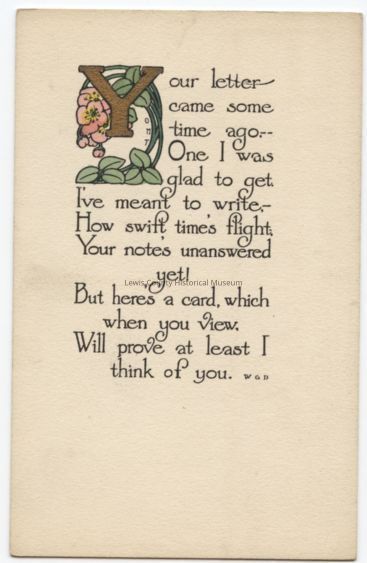 Your letter
came some
time ago:-
One I was
glad to get.
I've meant to write,-
How swift time's flight,
Your note's unanswered
yet!
Lewis County Historical Museum
But here's a card, which
when you view.
Will prove at least I
think of you. WGD